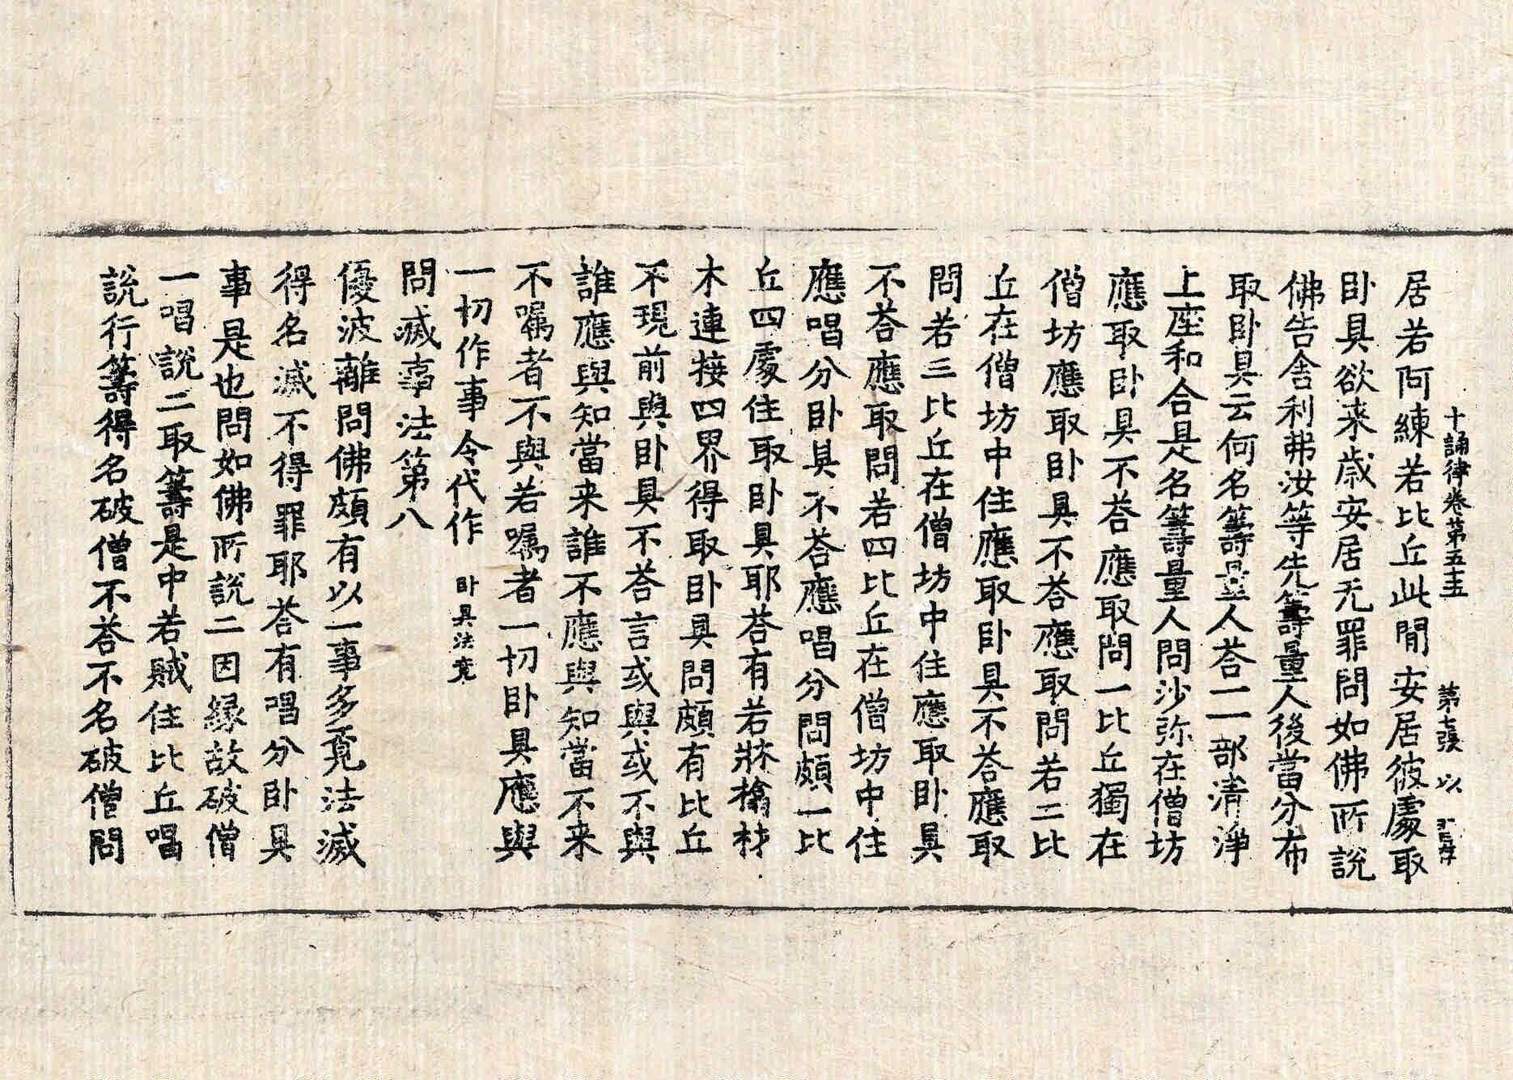 十誦律卷第五十五 第七張 以
居若阿練若比丘此閒安居彼處取
卧具欲来歲安居无罪問如佛所說
佛告舍利弗汝等先籌量人後當分布
取卧具云何名籌量人荅一一部清淨
上座和合是名籌量人問沙弥在僧坊
應取卧具不荅應取問一比丘獨在
僧坊應取卧具不荅應取問若二比
丘在僧坊中住應取卧具不荅應取
問若三比丘在僧坊中住應取卧具
不荅應取問若四比丘在僧坊中住
應唱分卧具不荅應唱分問頗一比
丘四處住取卧具耶荅有若牀檎材
木連接四界得取卧具問頗有比丘
不現前與卧具不荅言或與或不與
誰應與知當来誰不應與知當不来
不嘱者不與若嘱者一切卧具應與
一切作事令代作 卧具法竟
問滅事法第八
優波離問佛頗有以一事多覓法滅
得名滅不得罪耶荅有唱分卧具
事是也問如佛所說二因緣故破僧
一唱說二取籌是中若賊住比丘唱
說行籌得名破僧不荅不名破僧問